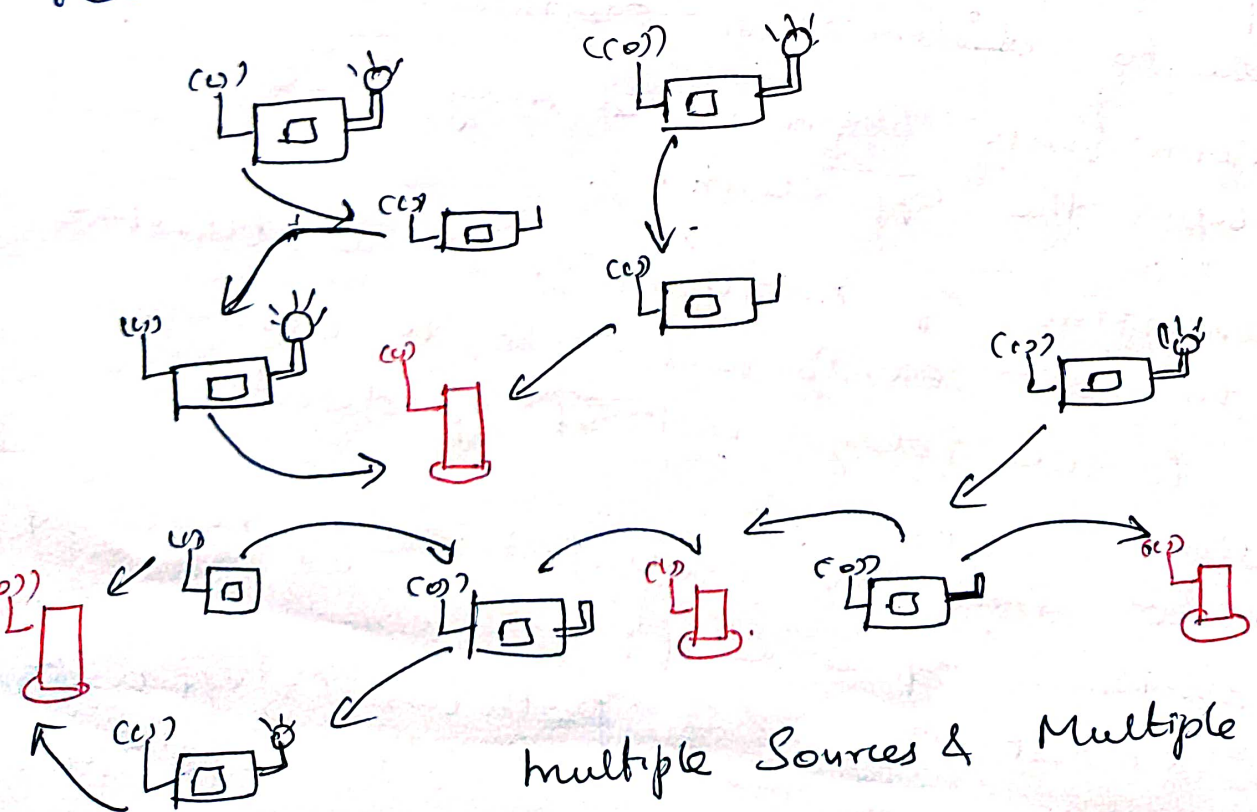 multiple Sources & Multiple